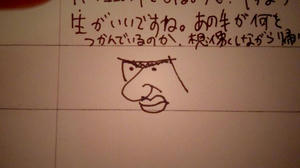 生がいいですね。あの手が何を
つかんでいるのか、想像しながら帰り